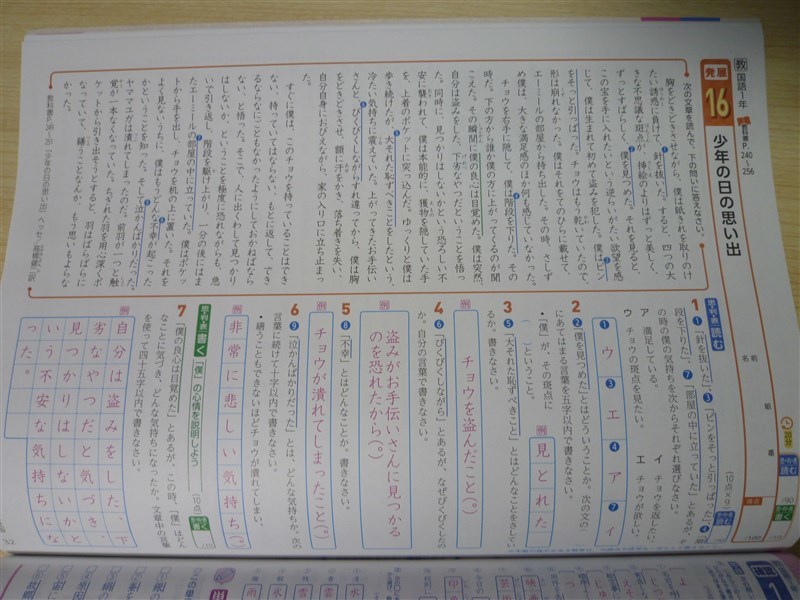 教 国語1年
発展
16 少年の日の思い出
P.240
256
20分
/90
/10
/100
次の文章を読んで、下の問いに答えなさい。
胸をどきどきさせながら、僕は紙きれを取りのけ
たい誘惑に負けて、針を抜いた。すると、四つの大
きな不思議な斑点が、挿絵のよりはずっと美しく、
ずっとすばらしく、僕を見つめた。それを見ると、
この宝を手に入れたいという逆らいがたい欲望を感
じて、僕は生まれて初めて盗みを犯した。僕はピン
をそっと引っぱった。チョウはもう乾いていたので、
形は崩れなかった。僕はそれをてのひらに載せて、
エーミールの部屋から持ち出した。その時、さしず
め僕は、大きな満足感のほか何も感じていなかった。
チョウを右手に隠して、僕は階段を下りた。その
時だ。下の方から誰か僕の方に上がってくるのが聞
こえた。その瞬間に僕の良心は目覚めた。僕は突然、
自分は盗みをした、下劣なやつだということを悟っ
た。同時に、見つかりはしないかという恐ろしい不
安に襲われて、僕は本能的に、獲物を隠していた手
を、上着のポケットに突っ込んだ。ゆっくりと僕は
歩き続けたが、大それた恥ずべきことをしたという、
冷たい気持ちに震えていた。上がってきたお手伝い
さんと、びくびくしながらすれ違ってから、僕は胸
をどきどきさせ、額に汗をかき、落ち着きを失い、
自分自身におびえながら、家の入り口に立ち止まっ
た。
すぐに僕は、このチョウを持っていることはでき
ない、持っていてはならない、もとに返して、でき
るならなにごともなかったようにしておかねばなら
ない、と悟った。そこで、人に出くわして見つかり
はしないか、ということを極度に恐れながらも、急
いで引き返し、階段を駆け上がり、一分の後にはま
たエーミールの部屋の中に立っていた。僕はポケッ
トから手を出し、チョウを机の上に置いた。それを
よく見ないうちに、僕はもうどんな不幸が起こった
かということを知った。そして泣かんばかりだった。
ヤママユガは潰れてしまったのだ。前羽が一つと触
覚が一本なくなっていた。ちぎれた羽を用心深くポ
ケットから引き出そうとすると、羽はばらばらに
なっていて、繕うことなんか、もう思いもよらな
かった。
思・判・表 読む
(10点×9)
1 「針を抜いた」、③「ピンをそっと引っぱった」、④
段を下りた」、⑦「部屋の中に立っていた」とあるが、
の時の僕の気持ちを次からそれぞれ選びなさい。
ア 満足している。
イ チョウを返したい。
ウ チョウの斑点を見たい。
エ チョウが欲しい。
① ウ ③ エ ④ ア ⑦ イ
2 ②「僕を見つめた」とはどういうことか。次の文の
にあてはまる言葉を五字以内で書きなさい。
・「僕」が、その斑点に
ということ。
例 見とれた
3 ⑤「大それた恥ずべきこと」とはどんなことをさしてい
るか。書きなさい。
例 チョウを盗んだこと(。)
4 ⑥「びくびくしながら」とあるが、なぜびくびくしたの
か。自分の言葉で書きなさい。
例 盗みがお手伝いさんに見つかる
のを恐れたから(。)
5 ⑧「不幸」とはどんなことか。書きなさい。
例 チョウが潰れてしまったこと(。)
6 ⑨「泣かんばかりだった」とは、どんな気持ちか。次の
言葉に続けて十字以内で書きなさい。
・繕うこともできないほどチョウが潰れてしまい、
例 非常に悲しい気持ち(。)
思・判・表 書く 「僕」の心情を説明しよう
(10点)
7 「僕の良心は目覚めた」とあるが、この時、「僕」はどん
なことに気づき、どんな気持ちになったか。文章中の言葉
を使って四十五字以内で書きなさい。
例 自分は盗みをした、下
劣なやつだと気づき、
見つかりはしないかと
いう不安な気持ちにな
った。
32